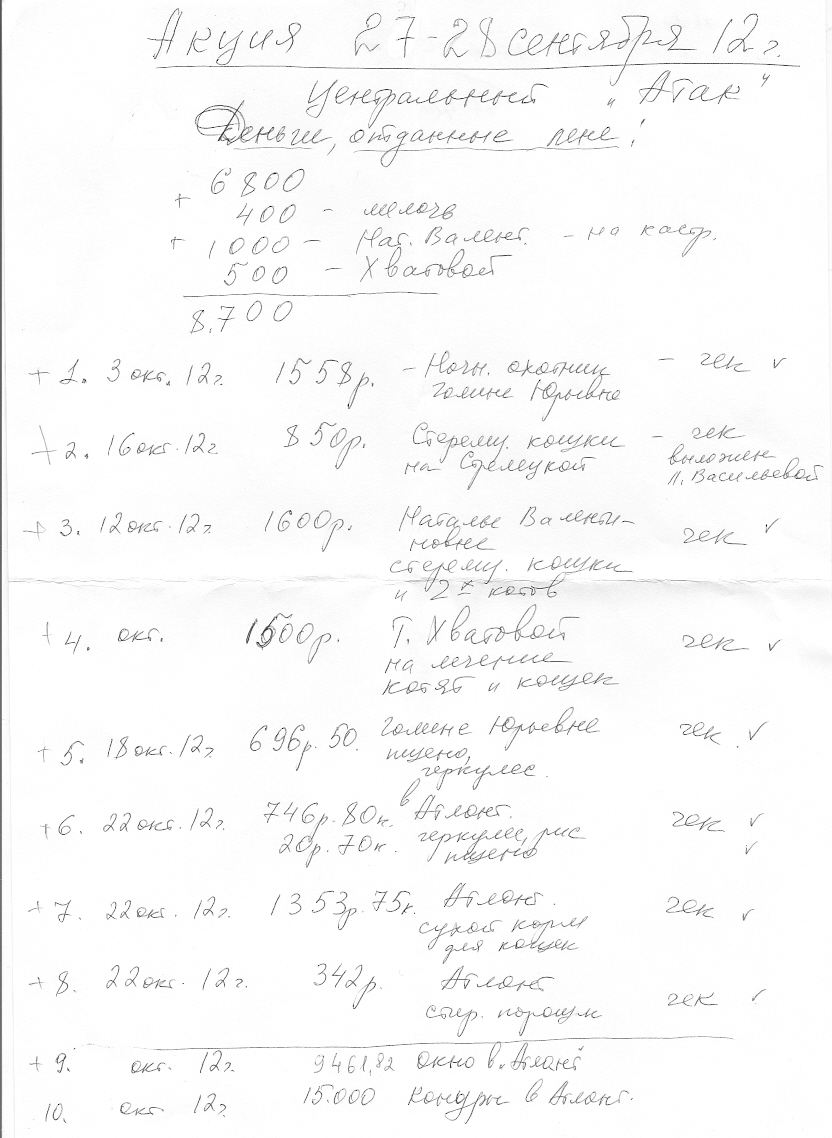 Акция 27-28 сентября 12г.
Центральный "Атак"
Деньги, отданные Лене:
6800
+ 400 - мелочь
+ 1000 - Нат. Валент. - на кастр.
500 - Хватовой
8.700
+ 1. 3 окт. 12г. 1558р. - Ночн. охотник - чек ✓
Галине Юрьевне
+ 2. 16 окт. 12г. 850р. Стерему. кошки - чек
на Стрелецкой выложен
Л. Васильевой
+ 3. 12 окт. 12г. 1600р. Наталье Валенти- чек ✓
новне
стерему. кошки
и 2х котов
+ 4. окт. 1500р. Т. Хватовой чек ✓
на лечение
котят и кошек
+ 5. 18 окт. 12г. 696р. 50. Галине Юрьевне чек ✓
пшено,
геркулес.
+ 6. 22 окт. 12г. 746р. 80к. в Атлант. чек ✓
20р. 70к. геркулес, рис ✓
пшено
+ 7. 22 окт. 12г. 1353р. 75к. Атлант. чек ✓
сухой корм
для кошек
+ 8. 22 окт. 12г. 342р. Атлант чек ✓
стир. порошк
+ 9. окт. 12г. 9461,82 окно в "Атлант"
10. окт 12г. 15.000 Конуры в Атлант.